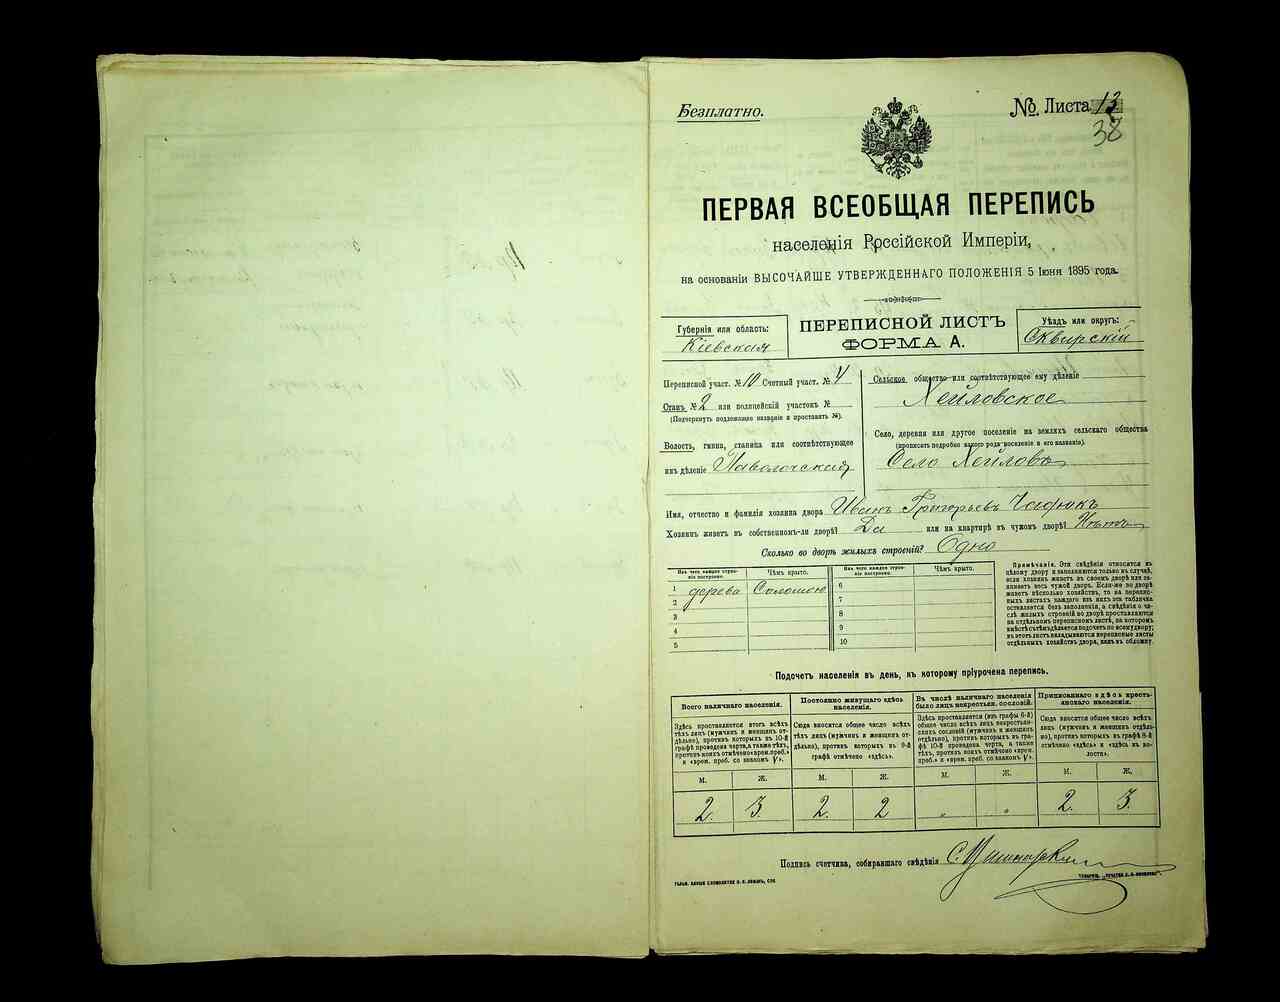 Безплатно.
№ Листа 13
38
ПЕРВАЯ ВСЕОБЩАЯ ПЕРЕПИСЬ
населенія Россійской Имперіи,
на основаніи ВЫСОЧАЙШЕ УТВЕРЖДЕННАГО ПОЛОЖЕНІЯ 5 Іюня 1895 года.
Губернія или область:
Кіевская
ПЕРЕПИСНОЙ ЛИСТЪ
ФОРМА А.
Уѣздъ или округъ:
Сквирскій
Переписной участ. № 10 Счетный участ. № 4
Станъ № 2 или полицейскій участокъ №
(Подчеркнуть подлежащее названіе и проставить №).
Волость, гмина, станица или соотвѣтствующее
имъ дѣленіе Паволочская
Сельское общество или соотвѣтствующее ему дѣленіе
Хейловское
Село, деревня или другое поселеніе на земляхъ сельскаго общества
(прописать подробно какого рода поселеніе и его названіе).
Село Хейловъ
Имя, отчество и фамилія хозяина двора Иванъ Григорьевъ
Хозяинъ живетъ въ собственномъ-ли дворѣ? Да или на квартирѣ въ чужомъ дворѣ? Нѣтъ
Сколько во дворѣ жилыхъ строеній? Одно
Изъ чего каждое строеніе построено. Чѣмъ крыто. Изъ чего каждое строеніе построено. Чѣмъ крыто.
1 дерева Соломою 6
2 7
3 8
4 9
5 10
Примѣчаніе. Эти свѣдѣнія относятся къ
цѣлому двору и заполняются только въ случаѣ,
если хозяинъ живетъ въ своемъ дворѣ или за-
нимаетъ весь чужой дворъ. Если-же во дворѣ
живетъ нѣсколько хозяйствъ, то на перепис-
ныхъ листахъ каждаго изъ нихъ эта табличка
оставляется безъ заполненія, а свѣдѣнія о чи-
слѣ жилыхъ строеній во дворѣ проставляются
на отдѣльномъ переписномъ листѣ, на которомъ
вмѣстѣ съ тѣмъ дѣлается подсчетъ по всему двору;
въ этотъ листъ вкладываются переписные листы
отдѣльныхъ хозяйствъ двора, какъ въ обложку.
Подсчетъ населенія въ день, къ которому пріурочена перепись.
Всего наличнаго населенія.
Здѣсь проставляется итогъ всѣхъ
тѣхъ лицъ (мужчинъ и женщинъ от-
дѣльно), противъ которыхъ въ 10-й
графѣ проведена черта, а также тѣхъ,
противъ коихъ отмѣчено «врем. преб.»
и «врем. преб. со знакомъ V».
Постоянно живущаго здѣсь
населенія.
Сюда вносится общее число всѣхъ
тѣхъ лицъ (мужчинъ и женщинъ от-
дѣльно), противъ которыхъ въ 9-й
графѣ отмѣчено «здѣсь».
Въ числѣ наличнаго населенія
было лицъ некрестьян. сословій.
Здѣсь проставляется (изъ графы 6-й)
общее число всѣхъ лицъ некрестьян-
скихъ сословій (мужчинъ и женщинъ
отдѣльно), противъ которыхъ въ гра-
фѣ 10-й проведена черта, а также
тѣхъ, противъ коихъ отмѣчено «врем.
преб.» и «врем. преб. со знакомъ V».
Приписаннаго здѣсь кресть-
янскаго населенія.
Сюда вносится общее число всѣхъ
лицъ (мужчинъ и женщинъ отдѣль-
но), противъ которыхъ въ графѣ 8-й
отмѣчено «здѣсь» и «здѣсь въ во-
лости».
М. Ж. М. Ж. М. Ж. М. Ж.
2. 3. 2. 2 „ „ 2. 3.
Подпись счетчика, собиравшаго свѣдѣнія С.